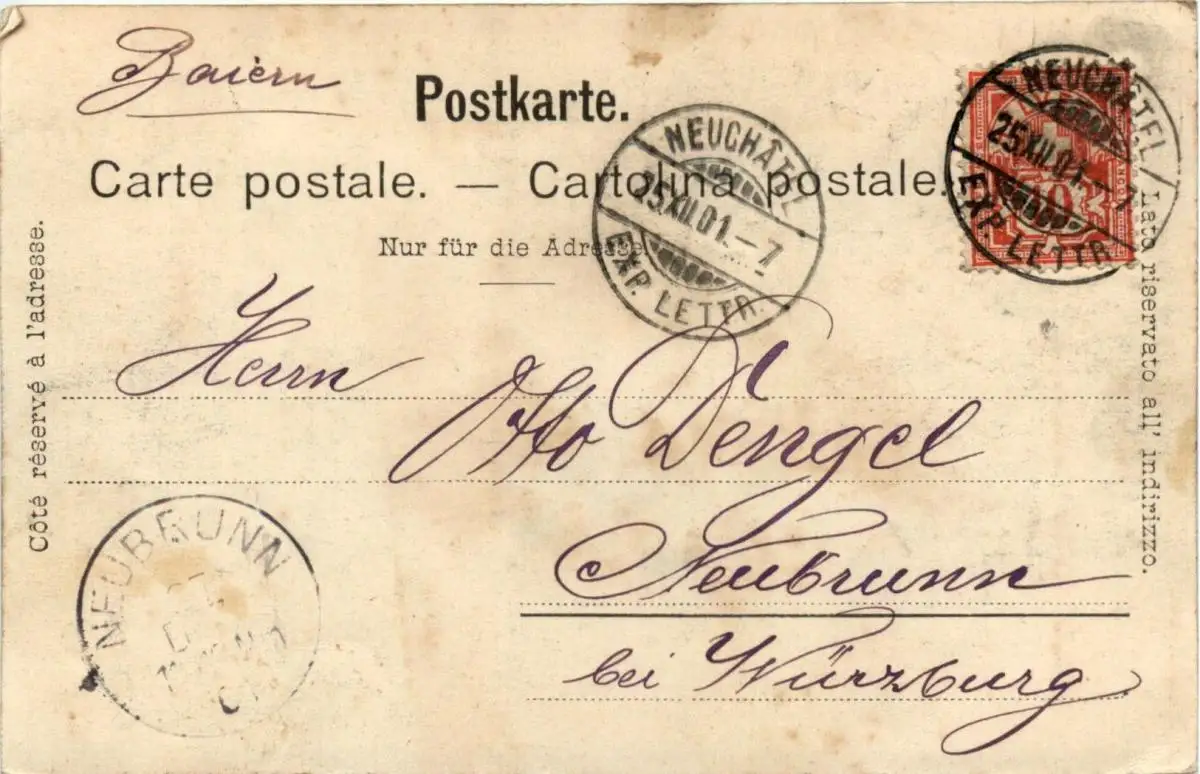 Baiern
Postkarte.
Carte postale. — Cartolina postale.
Nur für die Adresse
NEUCHÂTEL
25.XII.01.-7
EXP. LETTR.
NEUCHÂTEL
25.XII.01.-7
EXP. LETTR.
10
Côté réservé à l'adresse.
Lato riservato all' indirizzo.
Herrn
Otto Dengel
Neubrunn
bei Würzburg
NEUBRUNN